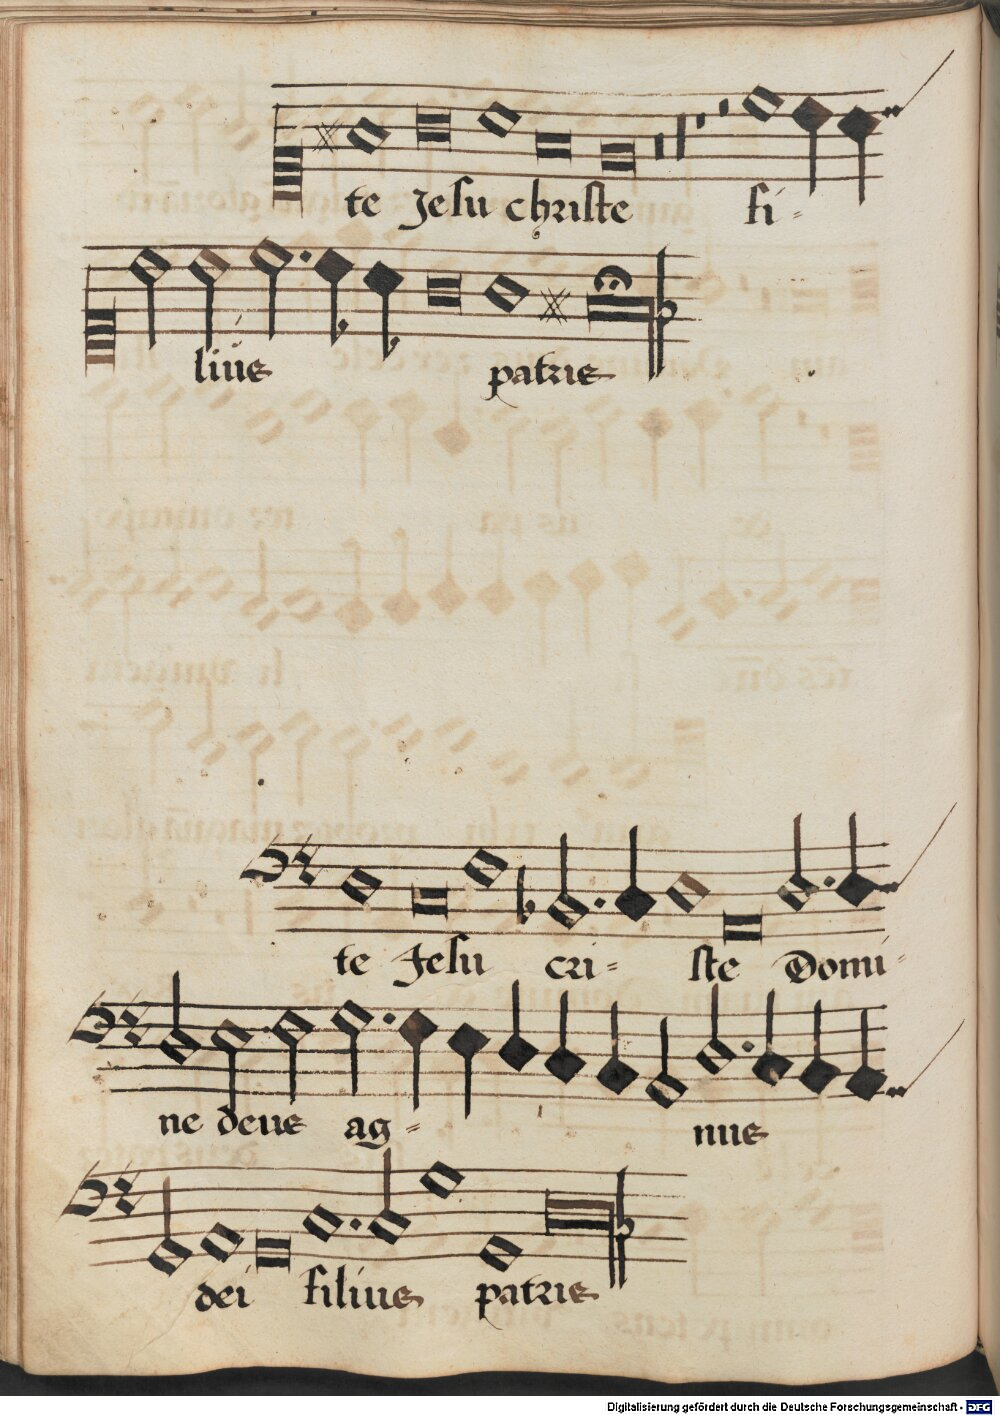 te Jesu christe fi-
lius patris
te Jesu cri- ste Domi-
ne deus ag- nus
dei filius patris
Digitalisierung gefördert durch die Deutsche Forschungsgemeinschaft - DFG